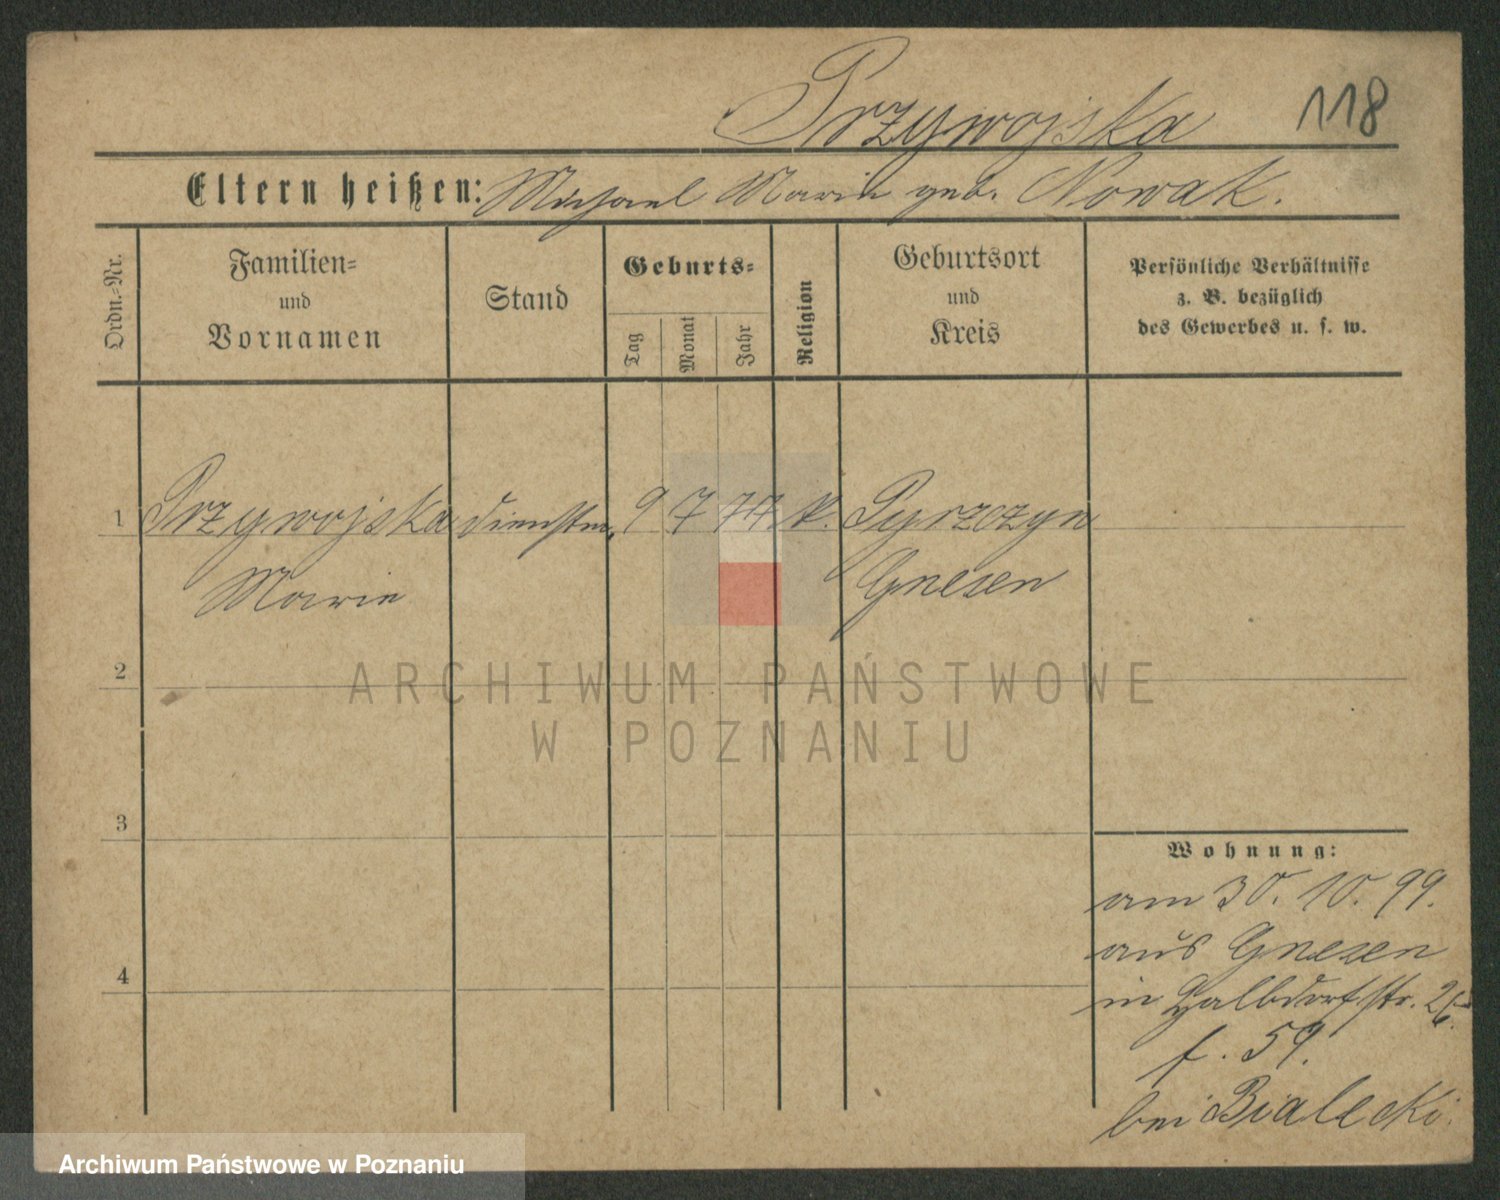 Przywojska 118
Eltern heißen: Michael Marie geb. Nowak.
Ordn.-Nr.
Familien-
und
Vornamen
Stand
Geburts-
Tag
Monat
Jahr
Religion
Geburtsort
und
Kreis
Persönliche Verhältnisse
z. B. bezüglich
des Gewerbes u. s. w.
1 Przywojska 9 7 77 k. Pyrzczyn
Marie Gnesen
2
ARCHIWUM PAŃSTWOWE
W POZNANIU
3
4
Wohnung:
am 30. 10. 99.
aus Gnesen
in Halbdorfstr.
f. 59.
bei Bialecki.
Archiwum Państwowe w Poznaniu